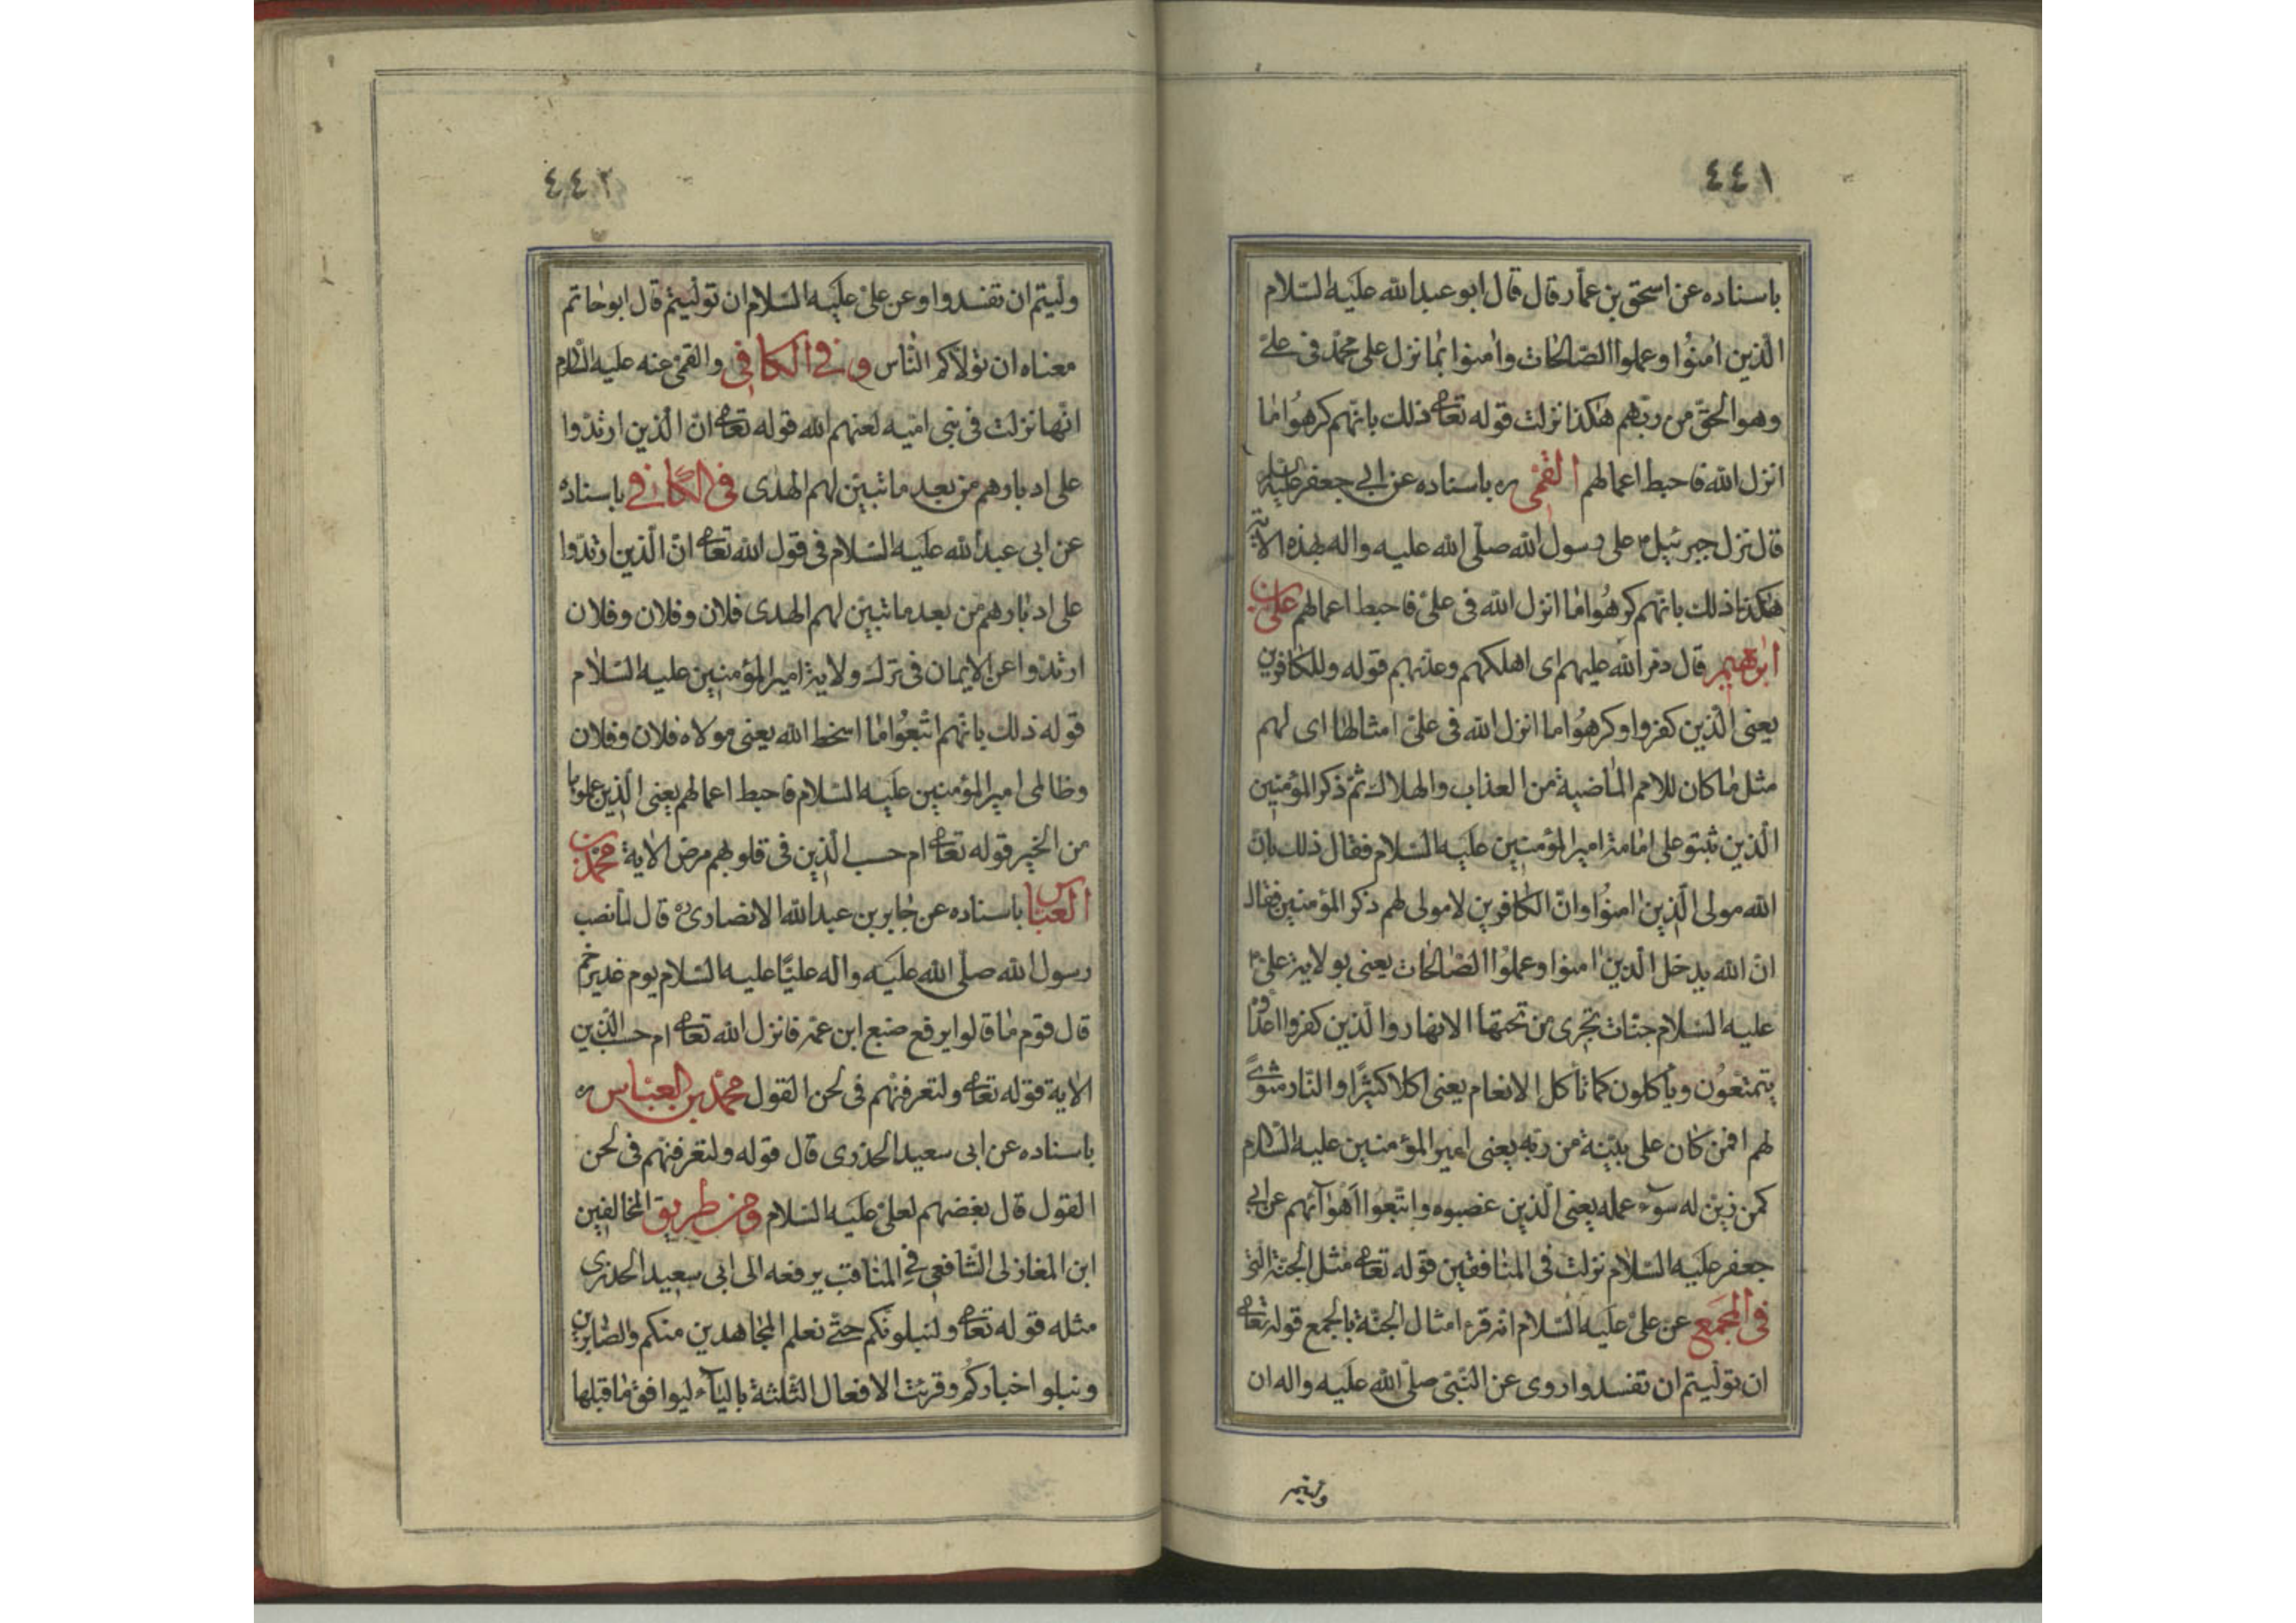 ٤٤١
باسناده عن اسحق بن عمّار قال قال ابو عبد الله عليه السّلام
الّذين امنُوا وعملوا الصّالحات وامنوا بما نزل على محمّد فى علىّ
وهو الحقّ من ربّهم هكذا نزلت قوله تعالى ذلك بانّهم كرهُوا ما
انزل الله فاحبط اعمالهم القمّى ره باسناده عن ابى جعفر عليه السلام
قال نزل جبرئيل ع على رسول الله صلّى الله عليه واله بهذه الاية
هكذا ذلك بانّهم كرهُوا ما انزل الله فى علىّ فاحبط اعمالهم علىّ بن
ابرهيم قال دمر الله عليهم اى اهلكهم وعذبهم قوله وللكافرين
يعنى الّذين كفروا وكرهُوا ما انزل الله فى علىّ امثالها اى لهم
مثل ما كان للامم الماضية من العذاب والهلاك ثمّ ذكر المؤمنين
الّذين ثبتو على امامة امير المؤمنين عليه السّلام فقال ذلك بانّ
الله مولى الّذين امنُوا وانّ الكافرين لا مولى لهم ذكر المؤمنين فقال
انّ الله يدخل الّذين امنوا وعملُوا الصّالحات يعنى بولاية علىّ ع
عليه السّلام جنّات تجرى من تحتها الانهار والّذين كفروا اعداوه
يتمتّعُون ويأكلون كما تأكل الانعام يعنى اكلا كثيرًا والنّار مثوىً
لهم افمن كان على بيّنة من ربّه يعنى امير المؤمنين عليه السّلام
كمن زيّن له سوٓء عمله يعنى الّذين غصبوه واتّبعُوا اهوٓائهم عن ابى
جعفر عليه السّلام نزلت فى المنافقين قوله تعالى مثل الجنّة الّتى
فى المجمع عن علىّ عليه السّلام انه قرء امثال الجنّة بالجمع قوله تعالى
ان تولّيتم ان تفسدوا روى عن النّبىّ صلّى الله عليه واله ان
وليتم
٤٤٢
ولّيتم ان تفسدوا وعن علىّ عليه السّلام ان تولّيتم قال ابو حاتم
معناه ان تولاّكم النّاس وفى الكافى والقمّى عنه عليه السّلام
انّها نزلت فى بنى اميّه لعنهم الله قوله تعالى انّ الّذين ارتدّوا
على ادبارهم من بعد ما تبيّن لهم الهدى فى الكافى باسناده
عن ابى عبد الله عليه السّلام فى قول الله تعالى انّ الّذين ارتدّوا
على ادبارهم من بعد ما تبيّن لهم الهدى فلان وفلان وفلان
ارتدّوا عن الايمان فى ترك ولاية امير المؤمنين عليه السّلام
قوله ذلك بانّهم اتّبعُوا ما اسخط الله يعنى مولاه فلان وفلان
وظالمى امير المؤمنين عليه السّلام فاحبط اعمالهم يعنى الّذين عملوها
من الخير قوله تعالى ام حسب الّذين فى قلوبهم مرض الاية محمّد بن
العبّاس باسناده عن جابر بن عبد الله الانصارىّ ره قال لمّا نصب
رسول الله صلّى الله عليه واله عليّا عليه السّلام يوم غدير خم
قال قوم ما قالوا يرفع ضبع ابن عمّه فانزل الله تعالى ام حسب الّذين
الاية قوله تعالى ولتعرفنّهم فى لحن القول محمّد بن العبّاس ره
باسناده عن ابى سعيد الخدرى قال قوله ولتعرفنّهم فى لحن
القول قال بغضهم لعلىّ عليه السّلام ومن طريق المخالفين
ابن المغازلى الشّافعى فى المناقب يرفعه الى ابى سعيد الخدرى
مثله قوله تعالى ولنبلونّكم حتّى نعلم المجاهدين منكم والصّابرين
ونبلو اخباركم وقرئت الافعال الثّلثة باليآء ليوافق ما قبلها